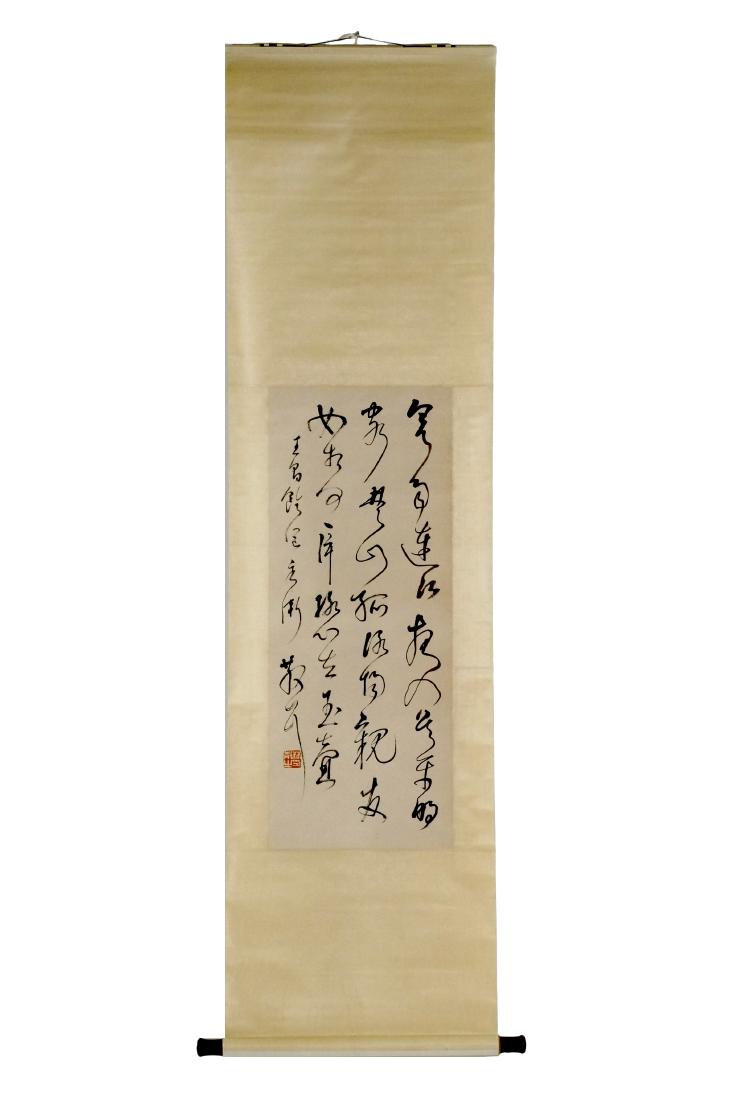 寒雨連江夜入吳平明
客楚山孤洛陽親友
如相問一片冰心在玉壺
王昌齡 散耳